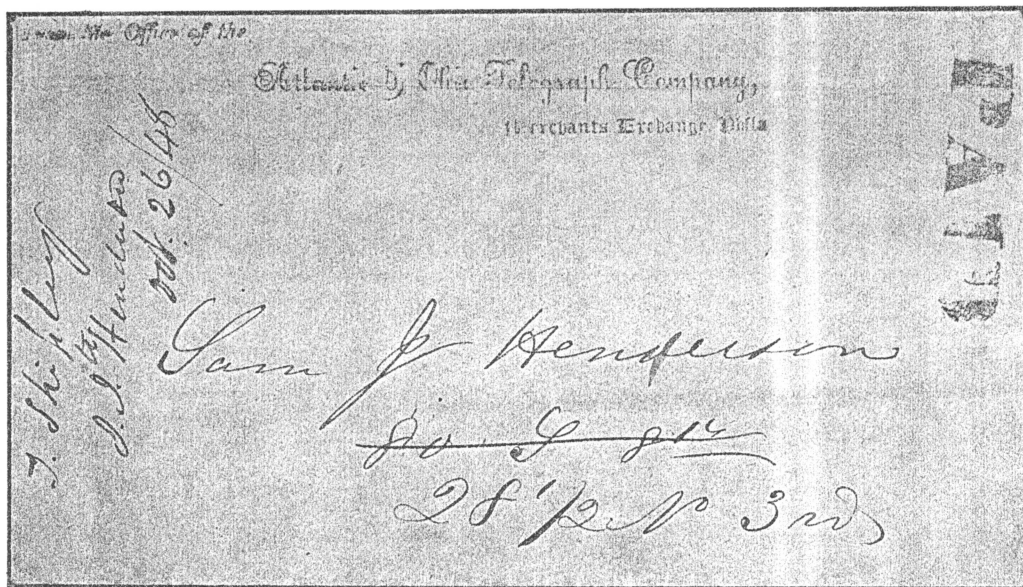 From the Office of the
Atlantic & Ohio Telegraph Company,
Merchants Exchange Phila
PAID
T. Shipley
S. J. Henderson
Oct. 26/48
Sam J Henderson
80 S 8th
28 1/2 No 3rd